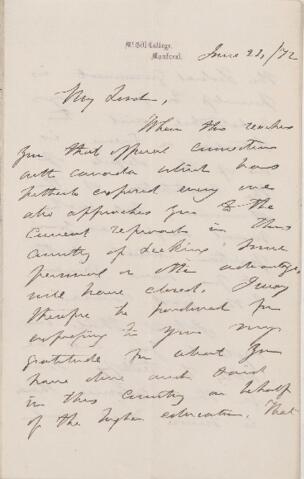 McGill College,
Montreal.
June 21, /72
My Lord,
When this reaches
you that official connection
with Canada which has
hitherto exposed every one
who approaches you to the
current reproach in this
country of seeking some
personal or other advantage
will have closed. I may
therefore be pardoned for
expressing to you my
gratitude for what you
have done and said
in this country on behalf
of the higher education. That